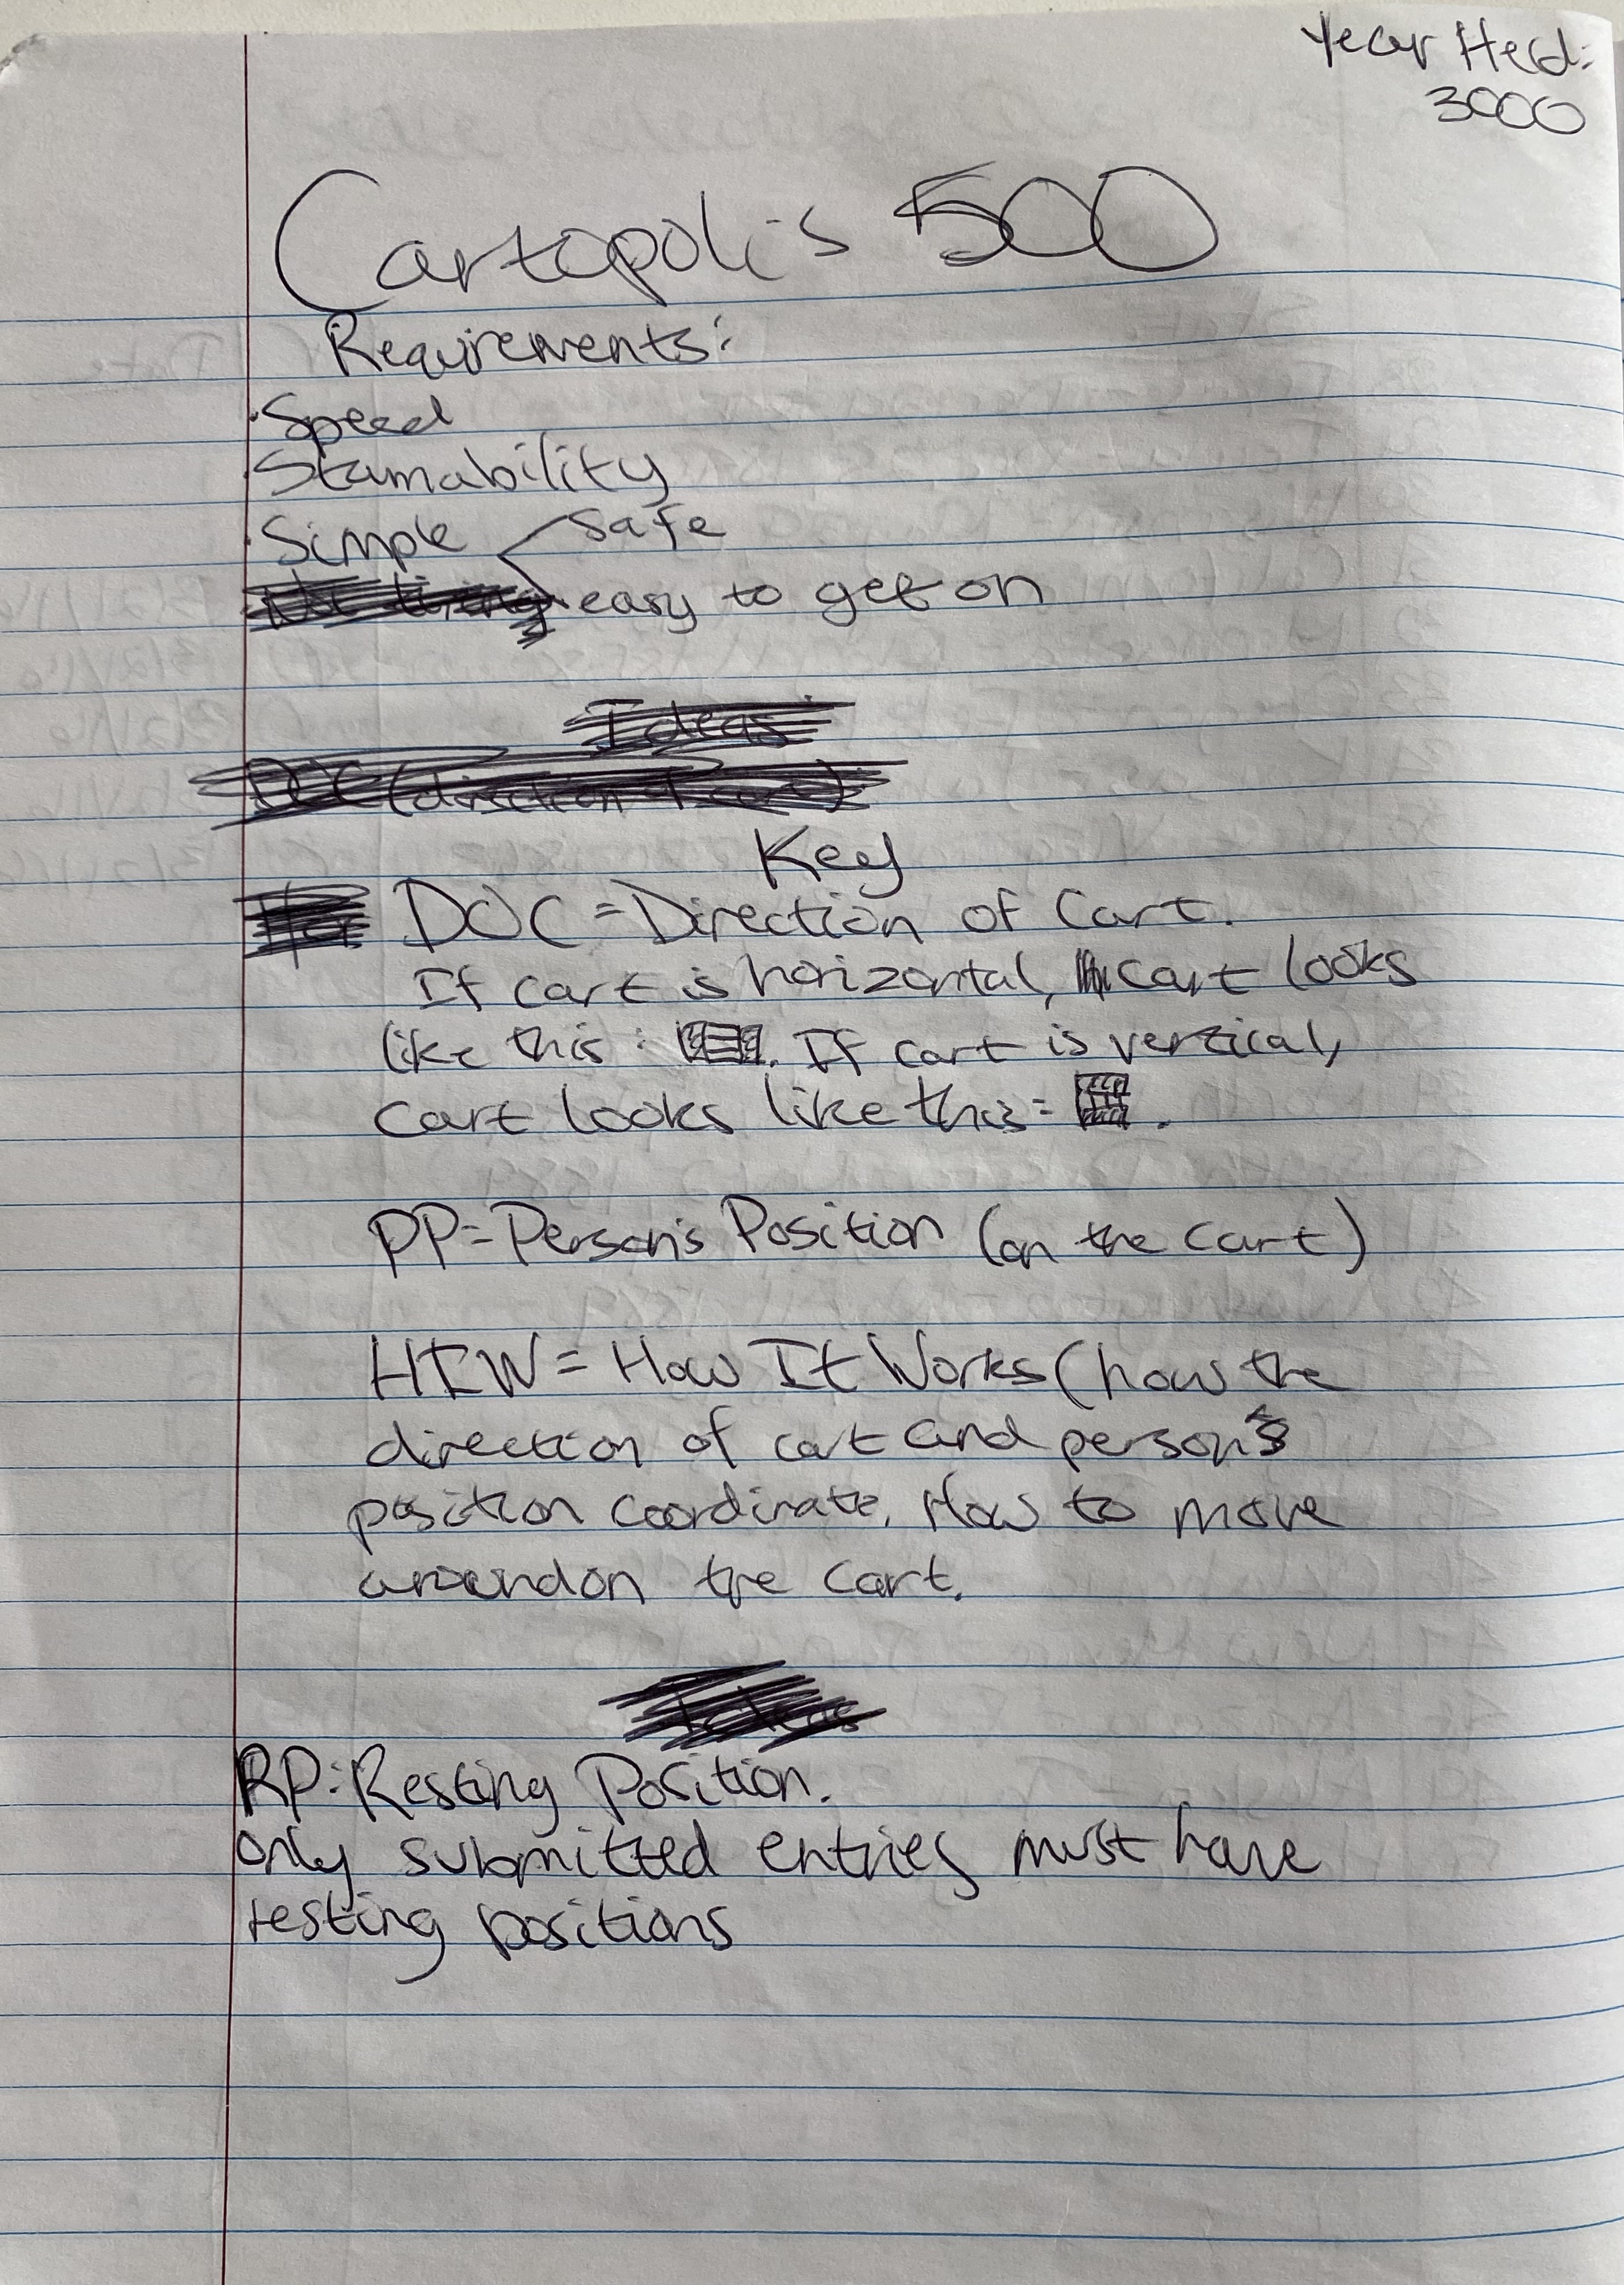 Year Held:
3000
Cartopolis 500
Requirements:
·Speed
·Stamability
·Simple
safe
easy to get on
Ideas
DOC (direction of cart)
Key
DOC = Direction of Cart.
If cart is horizontal, cart looks
like this: . If cart is vertical,
cart looks like this: .
PP=Person's Position (on the cart)
HIW = How It Works (how the
direction of cart and person's
position coordinate. How to move
around on the cart.
Ideas
RP: Resting Position.
only submitted entries must have
resting positions